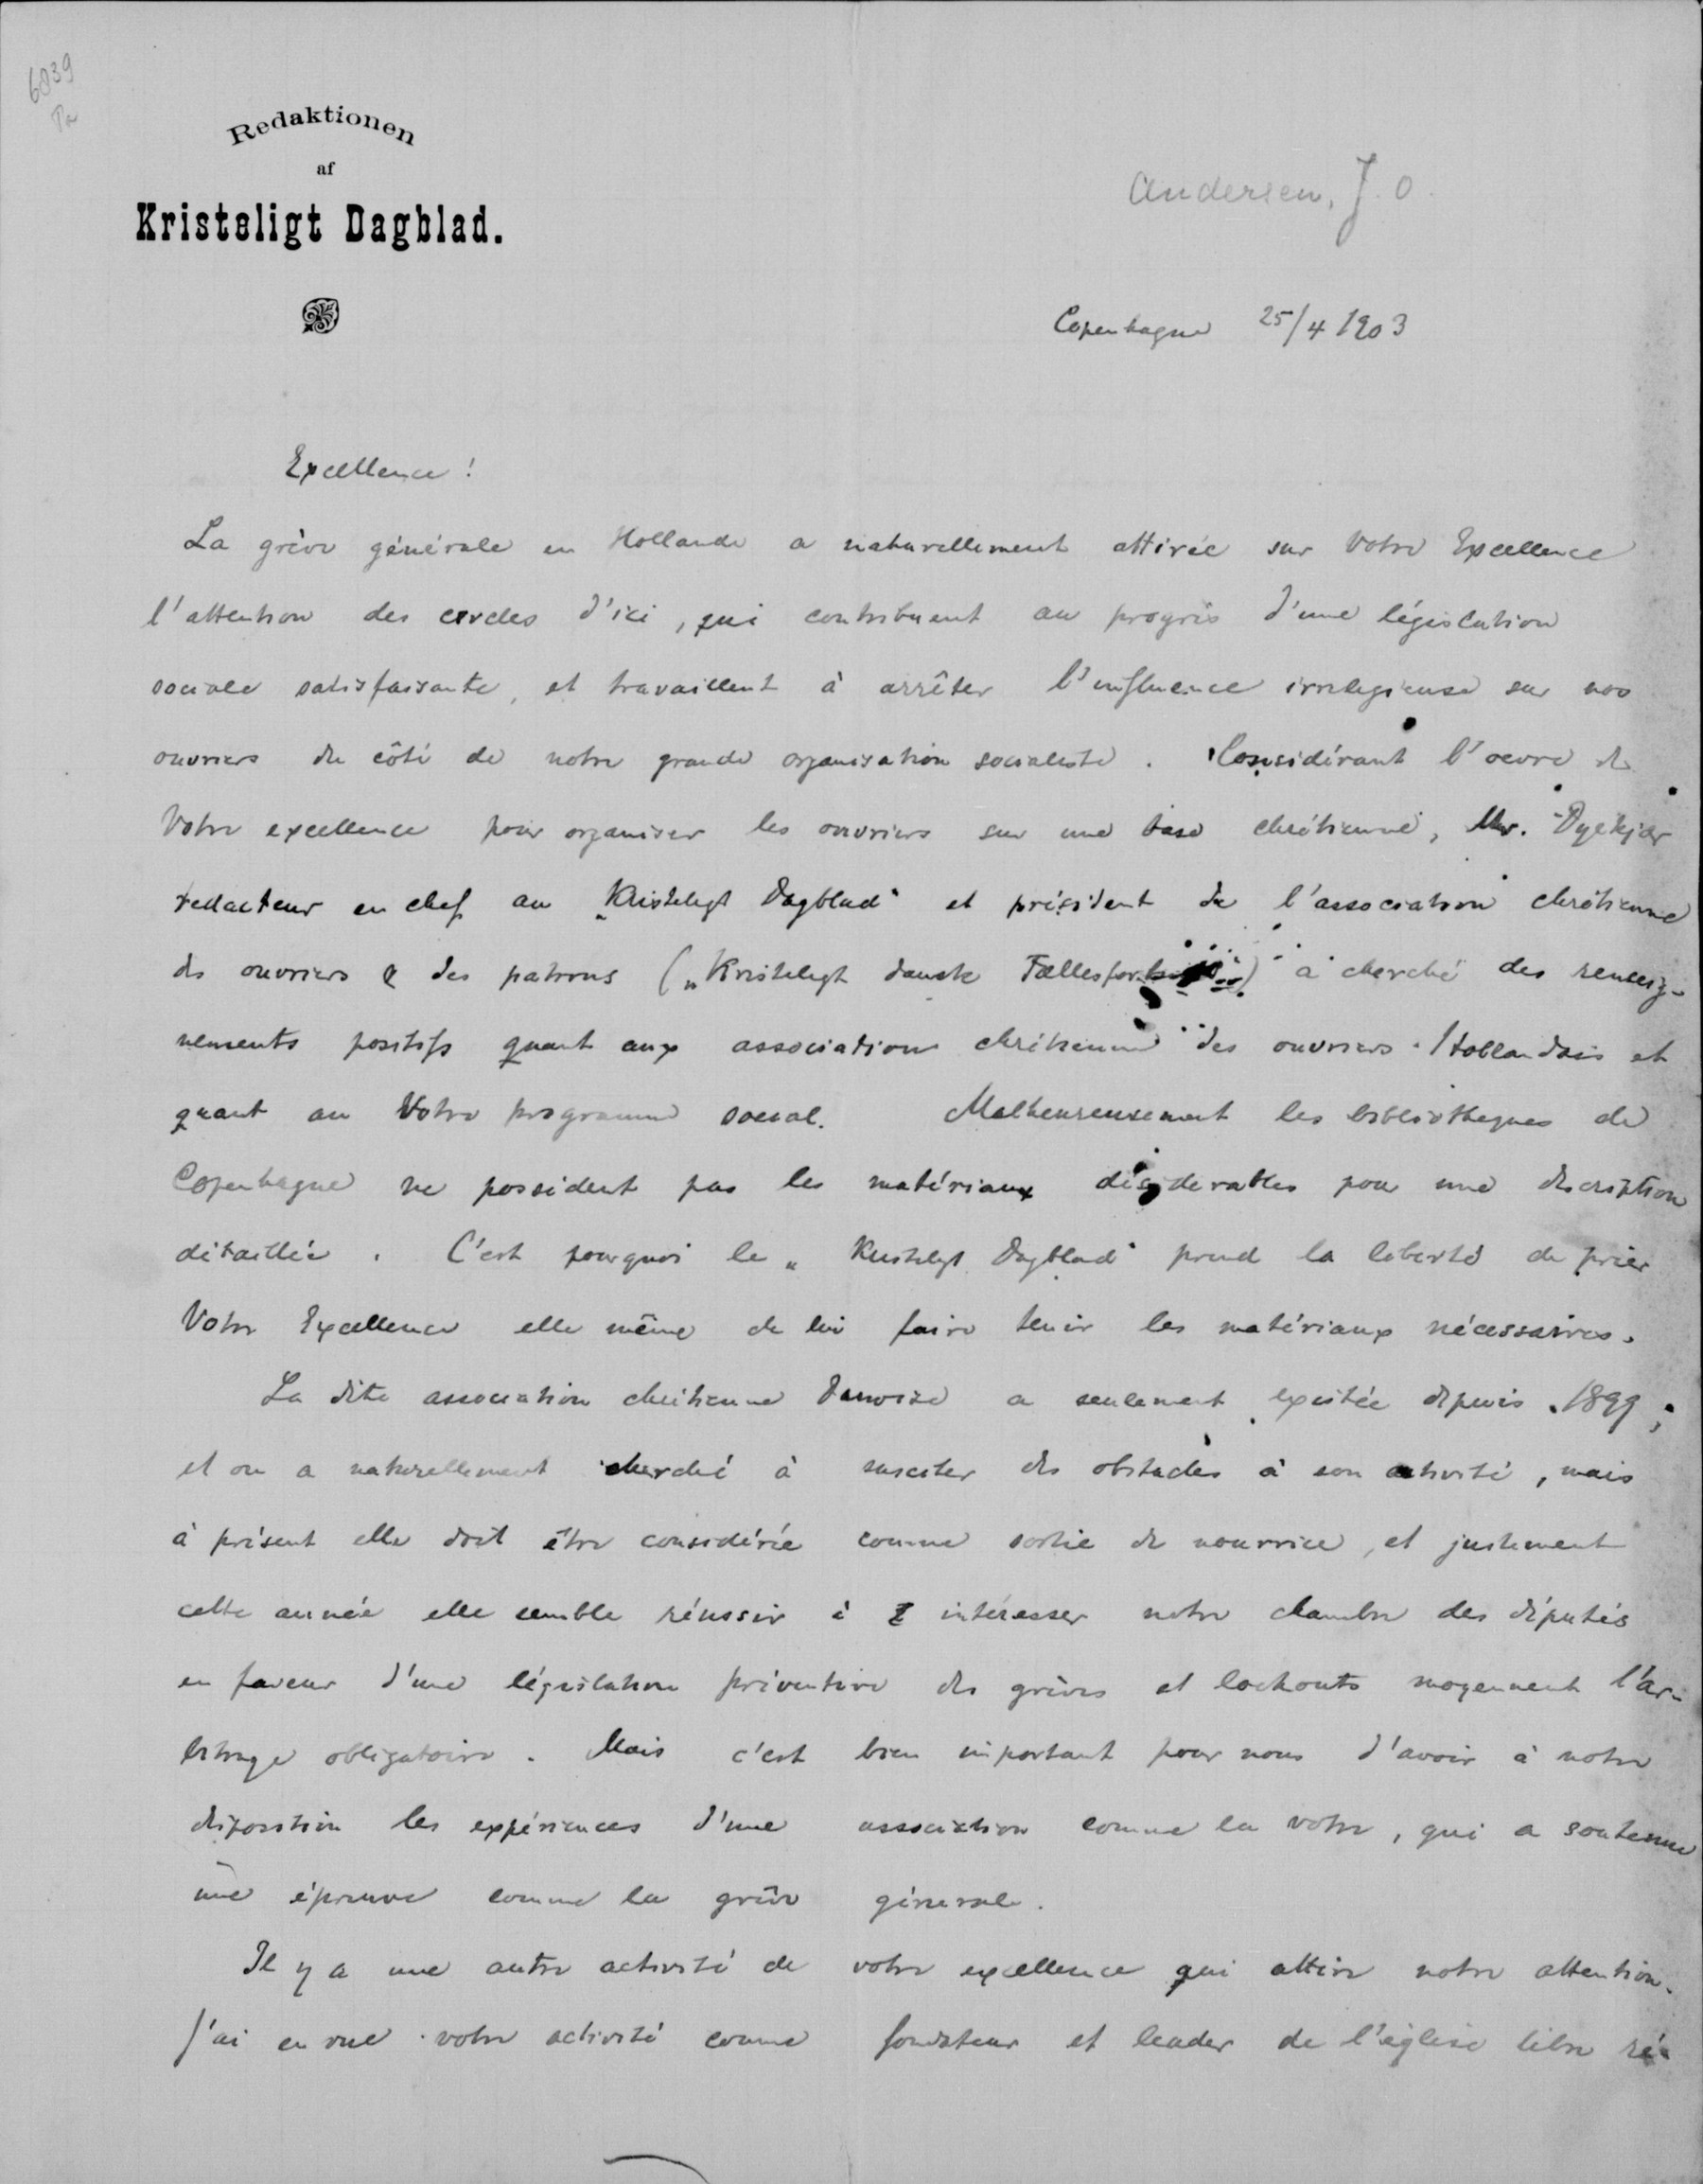 6839
Pa
Redaktionen
af
Kristeligt Dagblad.
Andersen, J. O.
Copenhague 25/4 1903
Excellence!
La grève générale en Hollande a naturellement attirée sur Votre Excellence
l'attention des cercles d'ici, qui contribuent au progrès d'une législation
sociale satisfaisante, et travaillent à arrêter l'influence irreligieuse sur nos
ouvriers du côté de notre grande organisation socialiste. Considérant l'oevre de
Votre excellence pour organiser les ouvriers sur une base chrétienne, Mr. Dyekjær
redacteur en chef au „Kristeligt Dagblad“ et président de l'association chrétienne
des ouvriers & des patrons („Kristeligt dansk Fællesfor) a cherché des renseig-
nements positifs quant aux association chrétienne des ouvriers Hollandais et
quant au Votre programme social. Malheureusement les bibliotheques de
Copenhague ne possident pas les matériaux désiderables pour une description
détaillée. C'est pourquoi le „Kristeligt Dagblad“ prend la liberté de prier
Votre Excellence elle même de lui faire tenir les matériaux nécessaires.
La dite association chrétienne danoise a seulement existée depuis 1899;
et on a naturellement cherché à susciter des obstacles à son activité, mais
à présent elle doit être considérée comme sortie de nourrice, et justement
cette année elle semble réussir à intéresser notre chambre des députés
en faveur d'une législation préventive des grèves et lockouts moyennent l'ar-
bitrage obligatoire. Mais c'est bien important pour nous d'avoir à notre
disposition les expériences d'une association comme la votre, qui a soutenue
une épreuve comme la grève génerale.
Il y a une autre activité de votre excellence qui attire notre attention.
J'ai en vue votre activité comme fondateur et leader de l'église libre ré-